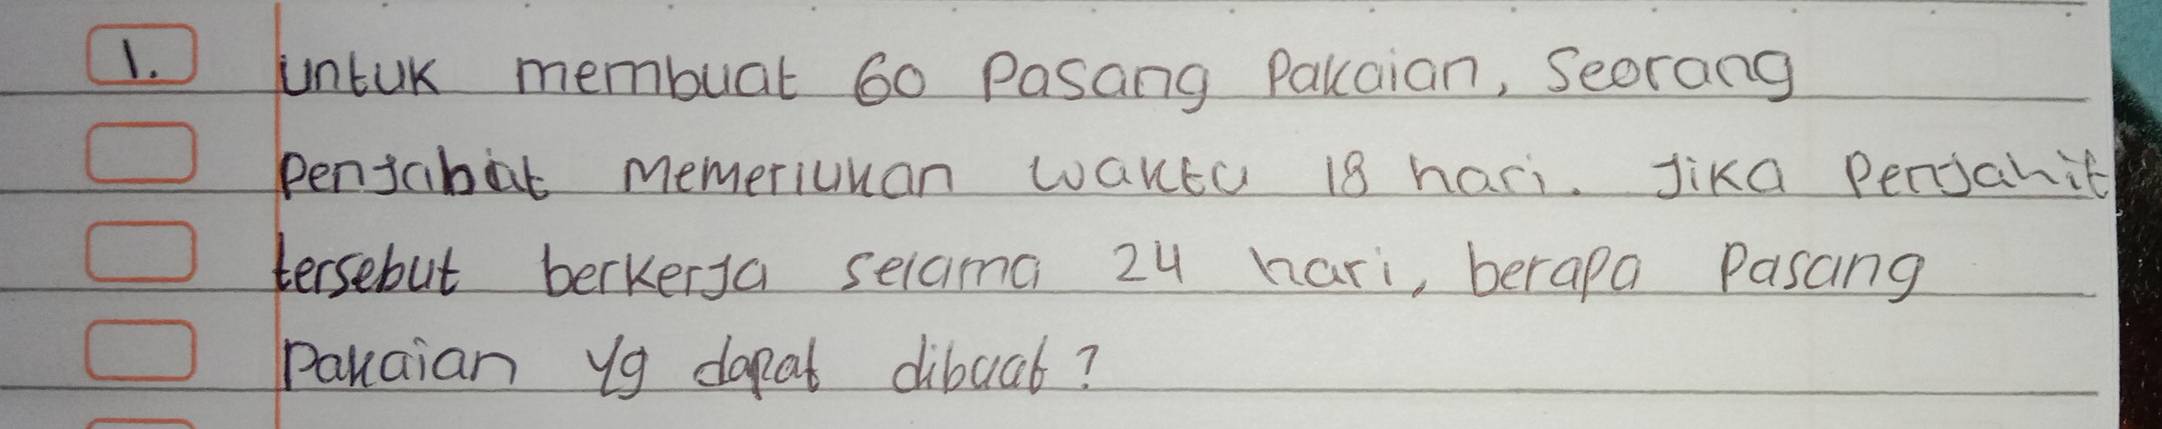 1. untuk membuat 60 Pasang Pakaian, Seorang
penjahit memerlukan waktu 18 hari. Jika Penjahit
tersebut berkerja selama 24 hari, berapa Pasang
Pakaian yg dapat dibuat?